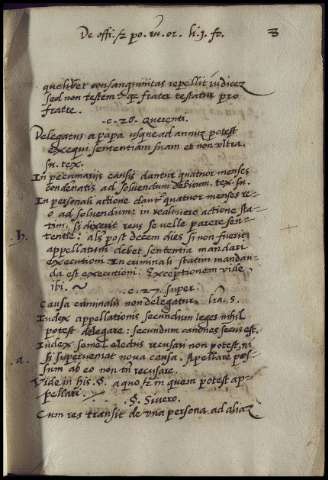 De offi. & po. iu. or. li. j. fo. 3
quelibet consanguinitas repellit iudicez
sed non testem quia frater testatur pro
fratre.
c. 26. Querenti.
Delegatus a papa usque ad annuz potest
exequi sententiam suam et non ultra
in. tex.
In pecuniariis causis dantur quatuor menses
condenatis ad solvendum debitum. tex. in.
In personali actione dantur quatuor menses re-
o ad solvendum: in reali vero actione sta-
h. tim, si dixerit reus se velle parere sen-
tentie: als post decem dies si non fuerit
appellatum debet sententia mandari
executioni. In criminali statim mandan-
da est executioni. Exceptionem vide
ibi.
c. 27. super
Causa criminalis non delegatur lia. 5.
Iudex appellationis secundum leges nihil
potest delegare: secundum canones secus est.
Iudex semel electus recusari non potest, ni
a. si superveniat nova causa. Apellari pos-
sum ab eo non tn recusare.
Vide in his §. a quo & in quem potest ap-
pellari. §. Si vero.
Cum res transit de una persona ad aliaz